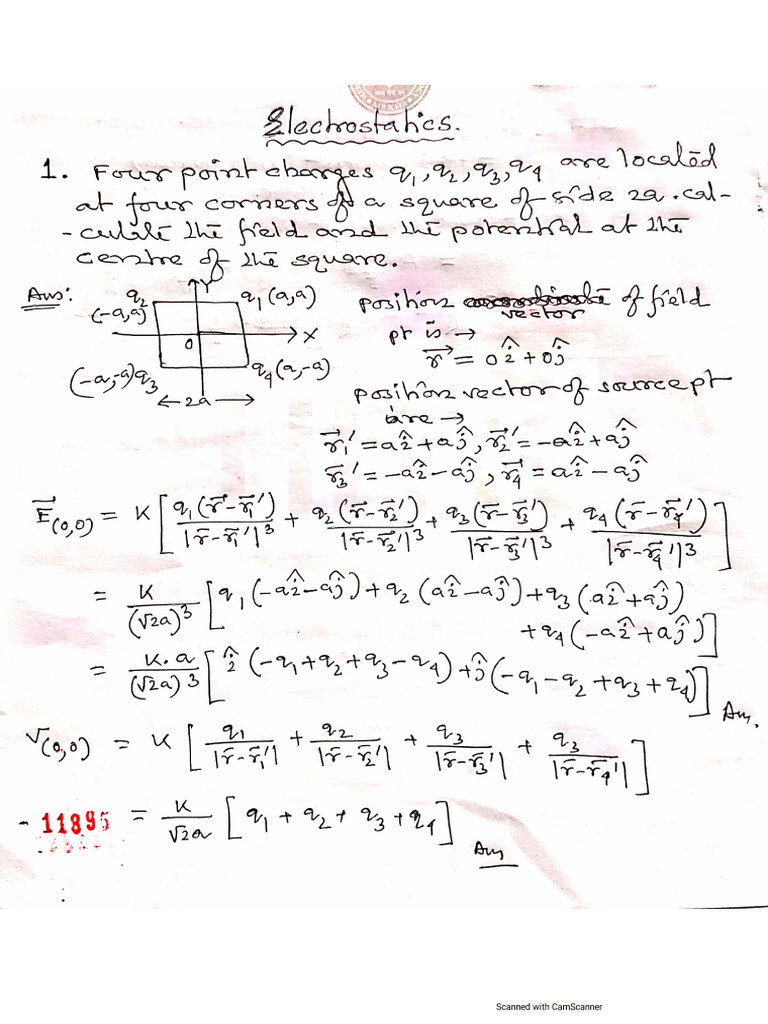 Electrostatics.
1. Four point charges q₁, q₂, q₃, q₄ are located
at four corners of a square of side 2a. Cal-
-culate the field and the potential at the
centre of the square.
Ans:
Y
q₂
(-a,a)
q₁(a,a)
O
X
(-a,-a)q₃
q₄(a,-a)
← 2a →
position of field
vector
pt is →
r⃗ = 0î+0ĵ
position vector of source pt
are →
r⃗₁' = aî+aĵ, r⃗₂' = -aî+aĵ
r⃗₃' = -aî-aĵ, r⃗₄ = aî-aĵ
E⃗(0,0) = K[q₁(r⃗-r⃗₁')/|r̄-r̄₁'|³ + q₂(r̄-r̄₂')/|r̄-r̄₂'|³ + q₃(r̄-r̄₃')/|r̄-r̄₃'|³ + q₄(r̄-r̄₄')/|r̄-r̄₄'|³]
= K/(√2a)³ [q₁(-aî-aĵ)+q₂(aî-aĵ)+q₃(aî+aĵ)
+q₄(-aî+aĵ)]
= K.a/(√2a)³ [î(-q₁+q₂+q₃-q₄)+ĵ(-q₁-q₂+q₃+q₄)]
Ans.
V(0,0) = K[q₁/|r̄-r̄₁'| + q₂/|r̄-r̄₂'| + q₃/|r̄-r̄₃'| + q₃/|r̄-r̄₄'|]
- 11895
= K/√2a [q₁ + q₂ + q₃ + q₄]
Ans
Scanned with CamScanner